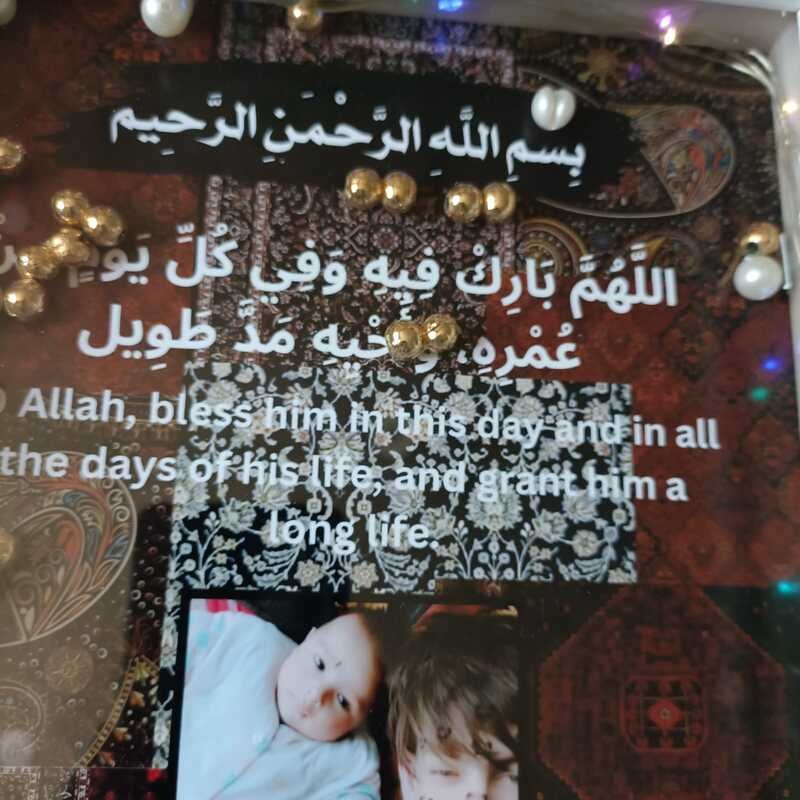 بِسمِ اللَّهِ الرَّحْمَنِ الرَّحِيم
اللَّهُمَّ بَارِكْ فِيه وَفِي كُلِّ يَومٍ
عُمْرِهِ، وَأَحْيِهِ مَدَّ طَوِيل
Allah, bless him in this day and in all
the days of his life, and grant him a
long life.